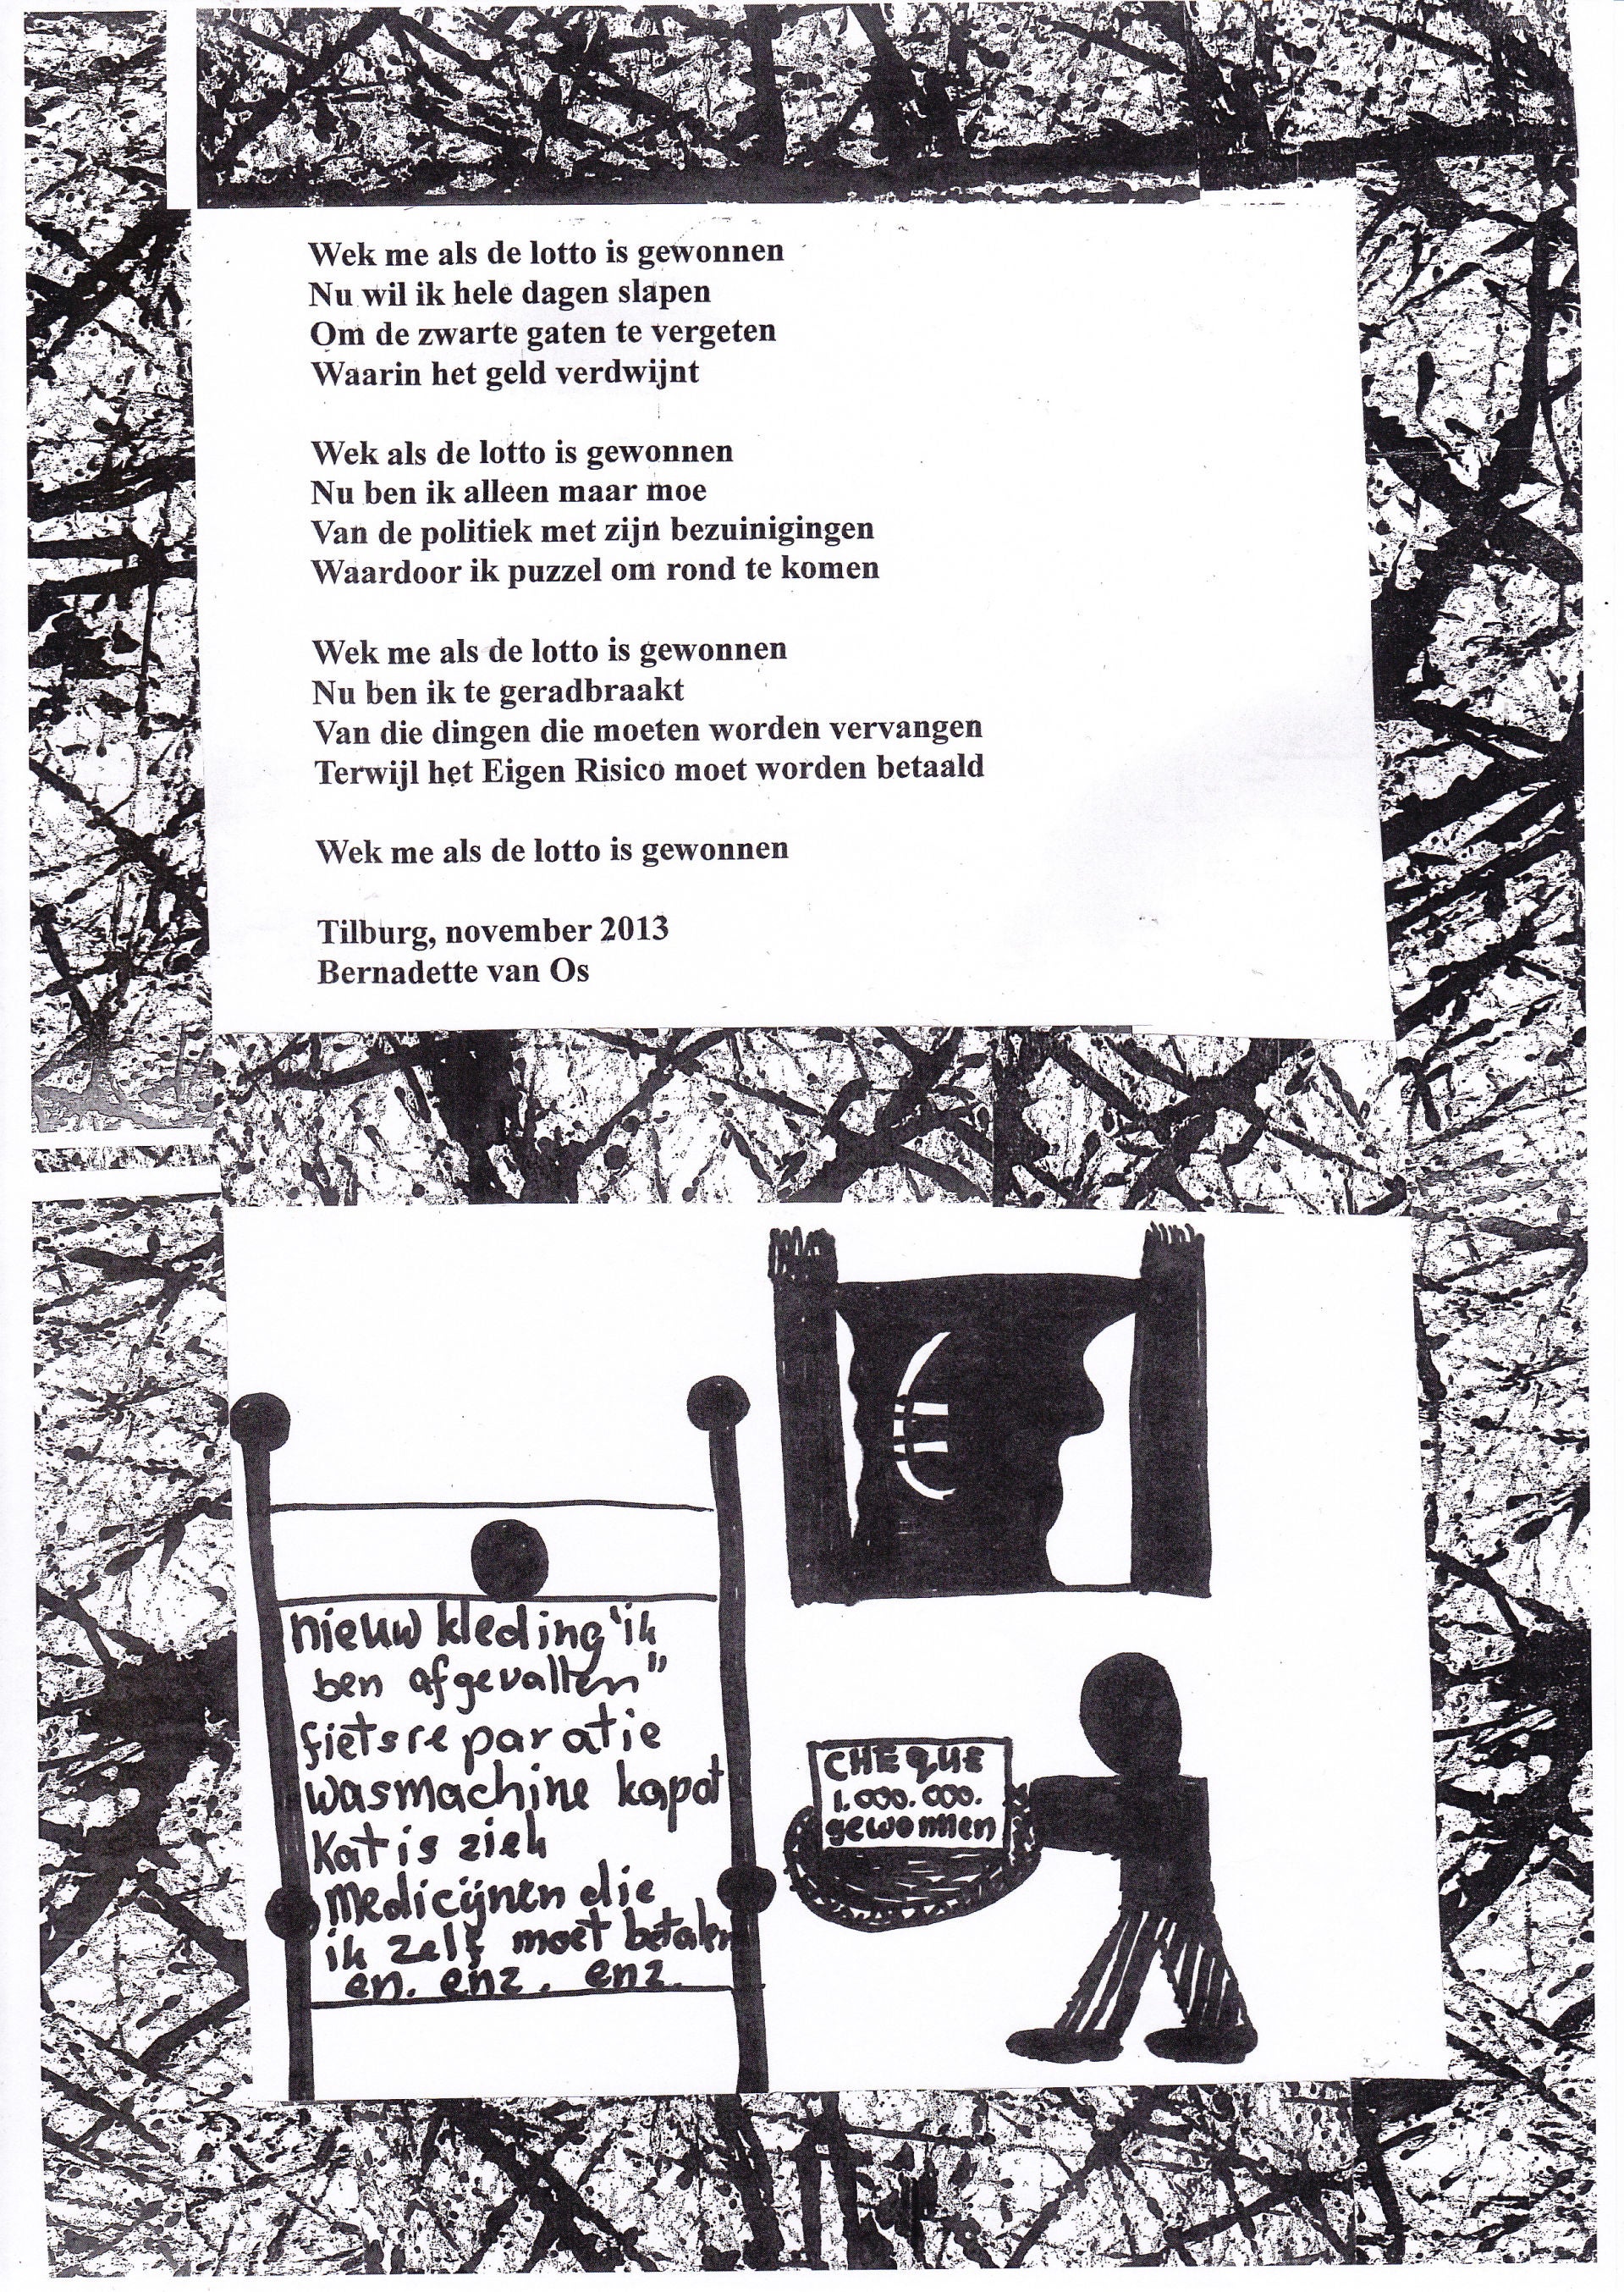 Wek me als de lotto is gewonnen
Nu wil ik hele dagen slapen
Om de zwarte gaten te vergeten
Waarin het geld verdwijnt
Wek als de lotto is gewonnen
Nu ben ik alleen maar moe
Van de politiek met zijn bezuinigingen
Waardoor ik puzzel om rond te komen
Wek me als de lotto is gewonnen
Nu ben ik te geradbraakt
Van die dingen die moeten worden vervangen
Terwijl het Eigen Risico moet worden betaald
Wek me als de lotto is gewonnen
Tilburg, november 2013
Bernadette van Os
€
nieuw kleding "ik
ben afgevallen"
fietsreparatie
wasmachine kapot
Kat is ziek
Medicijnen die
ik zelf moet betalen
en. enz. enz.
CHEQUE
1.000.000.
gewonnen